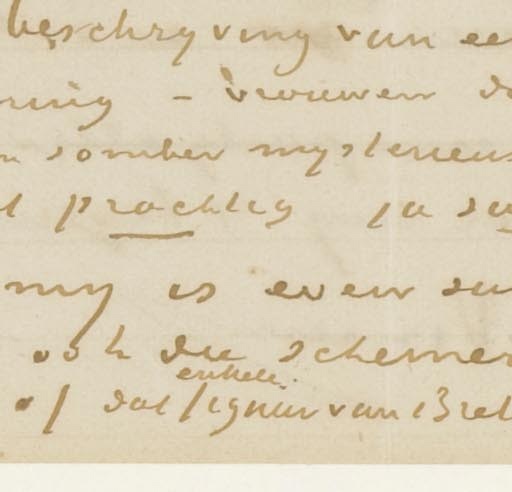 beschryving van ee
ning – vrouwen d
n somber mysterieus
t prachtig ja su
my is even su
ook die schemer
enkele
of dat figuur van Bret